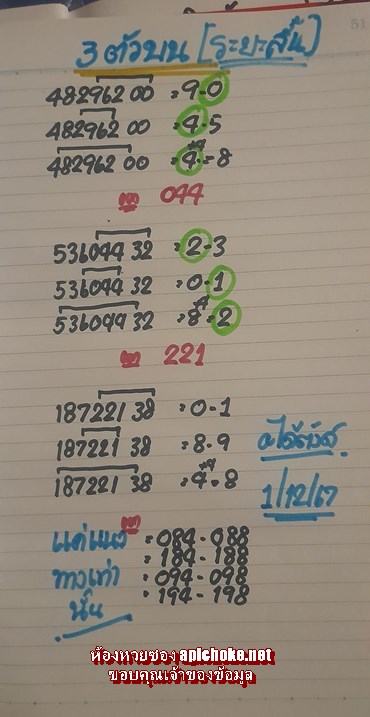 3 ตัวบน (ระยะสั้น)
482962 00 = 9-0
482962 00 = 4-5
482962 00 = 4-8
044
536044 32 = 2-3
536044 32 = 0-1
536044 32 = 8-2
221
187221 38 = 0-1
187221 38 = 8-9
187221 38 = 4-8
1/12/67
แค่แนว
ทางเท่า
นั้น
= 084-088
: 184-188
: 094-098
: 194-198
ห้องหวยซอง apichoke.net
ขอบคุณเจ้าของข้อมูล